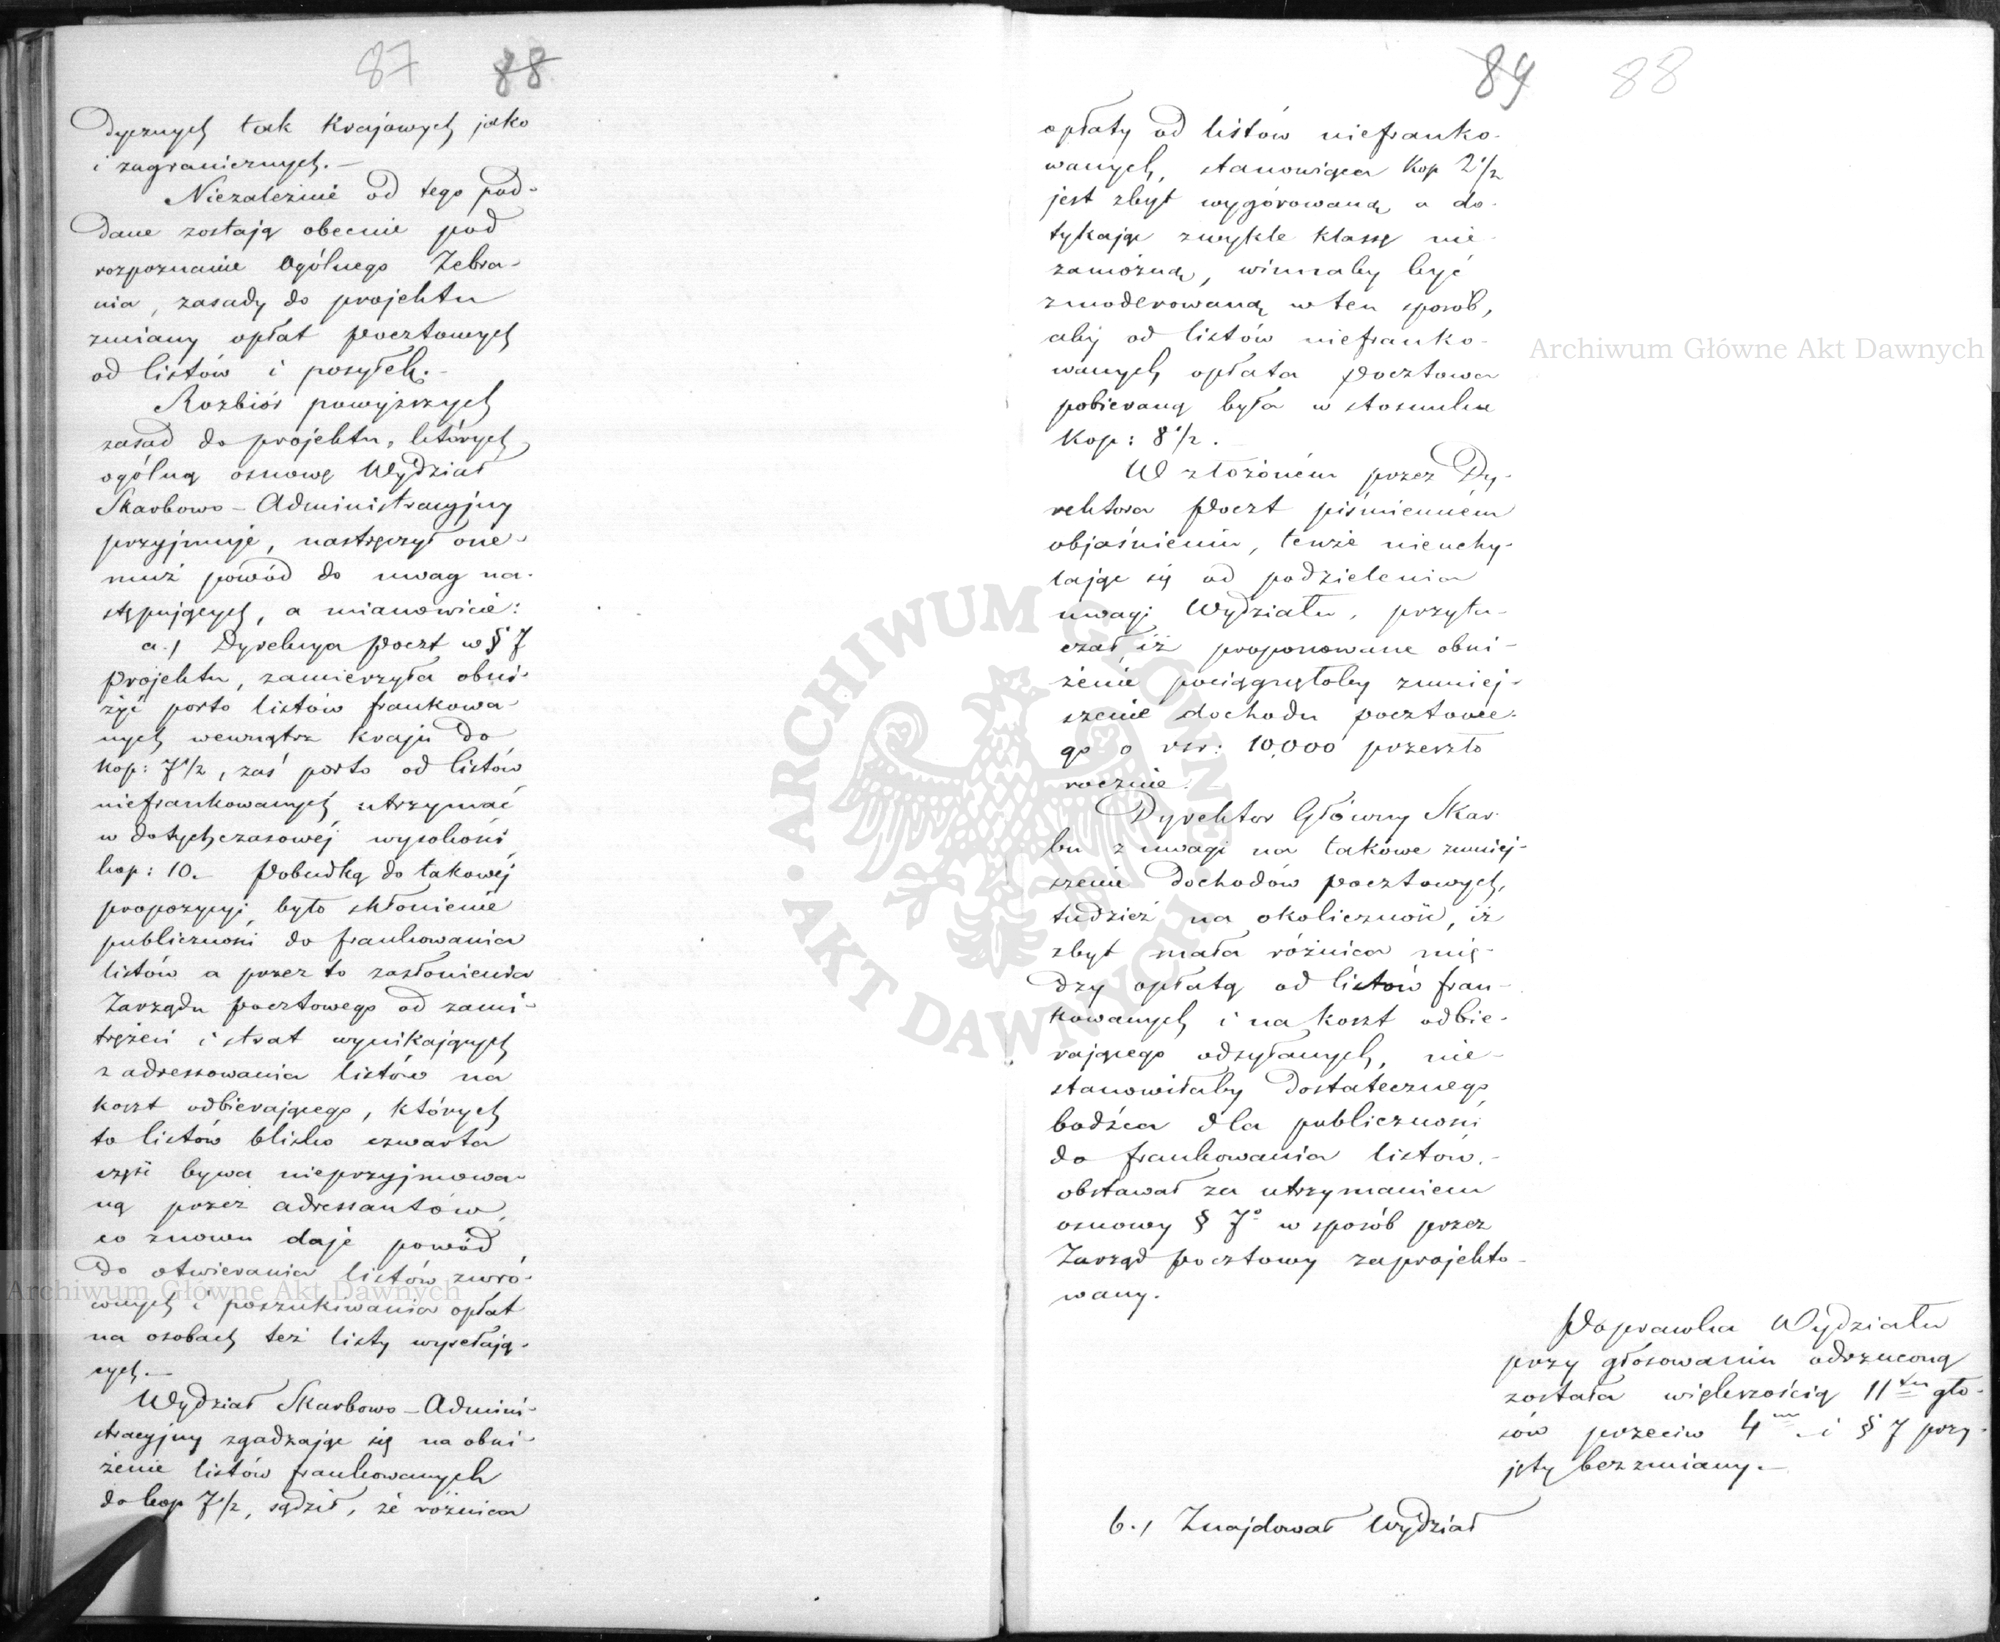 87 88
dycznych tak krajowych jako
i zagranicznych.—
Niezależnie od tego pod-
dane zostają obecnie pod
rozpoznanie Ogólnego Zebra-
nia, zasady do projektu
zmiany opłat pocztowych
od listów i posyłek.—
Rozbiór powyższych
zasad do projektu, których
ogólną osnowę Wydział
Skarbowo-Administracyjny
przyjmuje, nastręczył one-
muż powód do uwag na-
stępujących, a mianowicie:
a./ Dyrekcya Poczt w § 7
projektu, zamierzyła obni-
żyć porto listów frankowa-
nych wewnątrz kraju do
kop: 7½, zaś porto od listów
niefrankowanych utrzymać
w dotychczasowéj wysokości
kop: 10.— Pobudką do takowéj
propozycyi, było skłonienie
publiczności do frankowania
listów a przez to zasłonienia
Zarządu pocztowego od zami-
trężeń i strat wynikających
z adressowania listów na
koszt odbierającego, których
to listów blisko czwarta
część bywa nieprzyjmowa-
ną przez adressantów,
co znowu daje powód
do otwierania listów zwró-
conych i poszukiwania opłat
na osobach też listy wysełają-
cych.—
Wydział Skarbowo-Admini-
stracyjny zgadzając się na obni-
żenie listów frankowanych
do kop 7½, sądził, że różnica
89 88
opłaty od listów niefranko-
wanych, stanowiąca kop 2½
jest zbyt wygórowaną a do-
tykając zwykle klassę nie-
zamożną, winnaby być
zmoderowaną w ten sposób,
aby od listów niefranko-
wanych opłata pocztowa
pobieraną była w stosunku
kop: 8½.
W złożoném przez Dy-
rektora Poczt piśmienném
objaśnieniu, tenże nieuchy-
lając się od podzielenia
uwagi Wydziału, przytu-
czał, iż proponowane obni-
żenie pociągnęłoby zmniej-
szenie dochodu pocztowe-
go o rsr: 10,000 przeszło
rocznie.
Dyrektor Główny Skar-
bu z uwagi na takowe zmniej-
szenie dochodów pocztowych,
tudzież na okoliczność, iż
zbyt mała różnica mię-
dzy opłatą od listów fran-
kowanych i na koszt odbie-
rającego odsyłanych, nie-
stanowiłaby dostatecznego
bodźca dla publiczności
do frankowania listów,—
obstawał za utrzymaniem
osnowy § 7º w sposób przez
Zarząd pocztowy zaprojekto-
wany.
Poprawka Wydziału
przy głosowaniu odrzuconą
została większością 11tu gło-
sów przeciw 4m — i § 7 przy-
jęty bez zmiany.—
b./ Znajdował Wydział
Archiwum Główne Akt Dawnych
Archiwum Główne Akt Dawnych
ARCHIWUM GŁÓWNE · AKT DAWNYCH ·